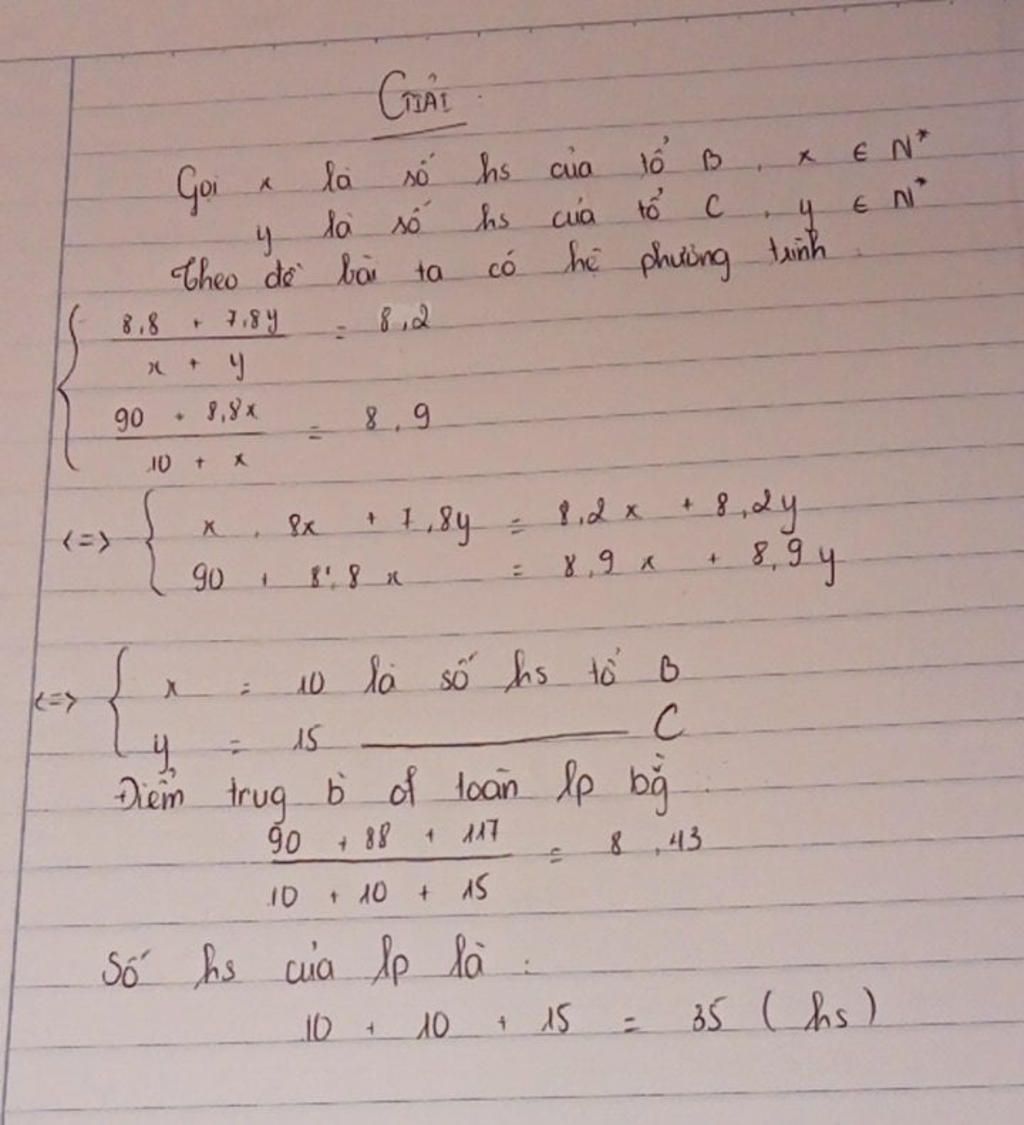 GIẢI
Gọi x là số hs của tổ B , x ∈ N*
y là số hs của tổ C , y ∈ N*
Theo đề bài ta có hệ phương trình
8,8 + 7,8y = 8,2
x + y
90 + 8,8x = 8,9
10 + x
<=> x . 8x + 7,8y = 8,2x + 8,2y
90 + 8,8x = 8,9x + 8,9y
<=> x = 10 là số hs tổ B
y = 15 ——— C
Điểm trug b of toàn lp bg
90 + 88 + 117 = 8,43
10 + 10 + 15
Số hs của lp là :
10 + 10 + 15 = 35 (hs)